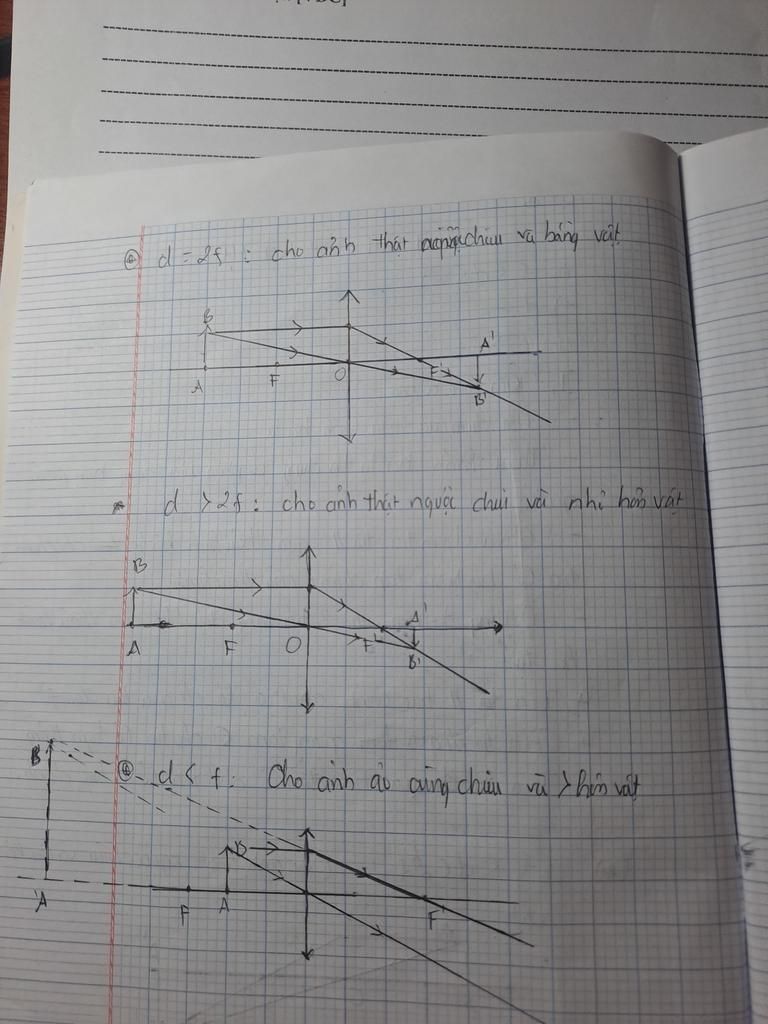 ⊕ d = 2f : cho ảnh thật ngược chiều và bằng vật
B
A'
A F O F' B'
* d > 2f : cho ảnh thật ngược chiều và nhỏ hơn vật
B
A'
A F O F' B'
B' ⊕ d < f : Cho ảnh ảo cùng chiều và > hơn vật
B
A' F A F'